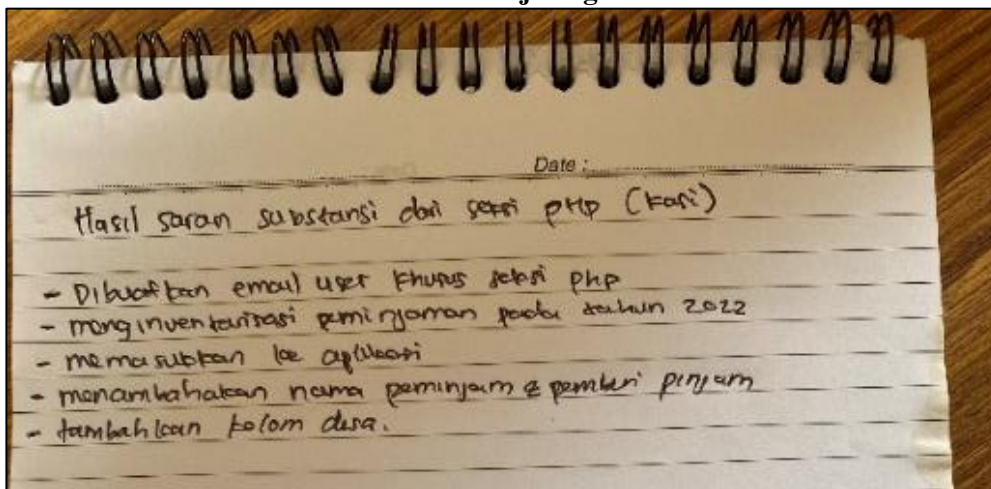 Date :
Hasil saran substansi dari seksi PHP (Kasi)
- Dibuatkan email user khusus seksi php
- menginventarisasi peminjaman pada tahun 2022
- memasukkan ke aplikasi
- menambahakan nama peminjam & pemberi pinjam
- tambahkan kolom desa.